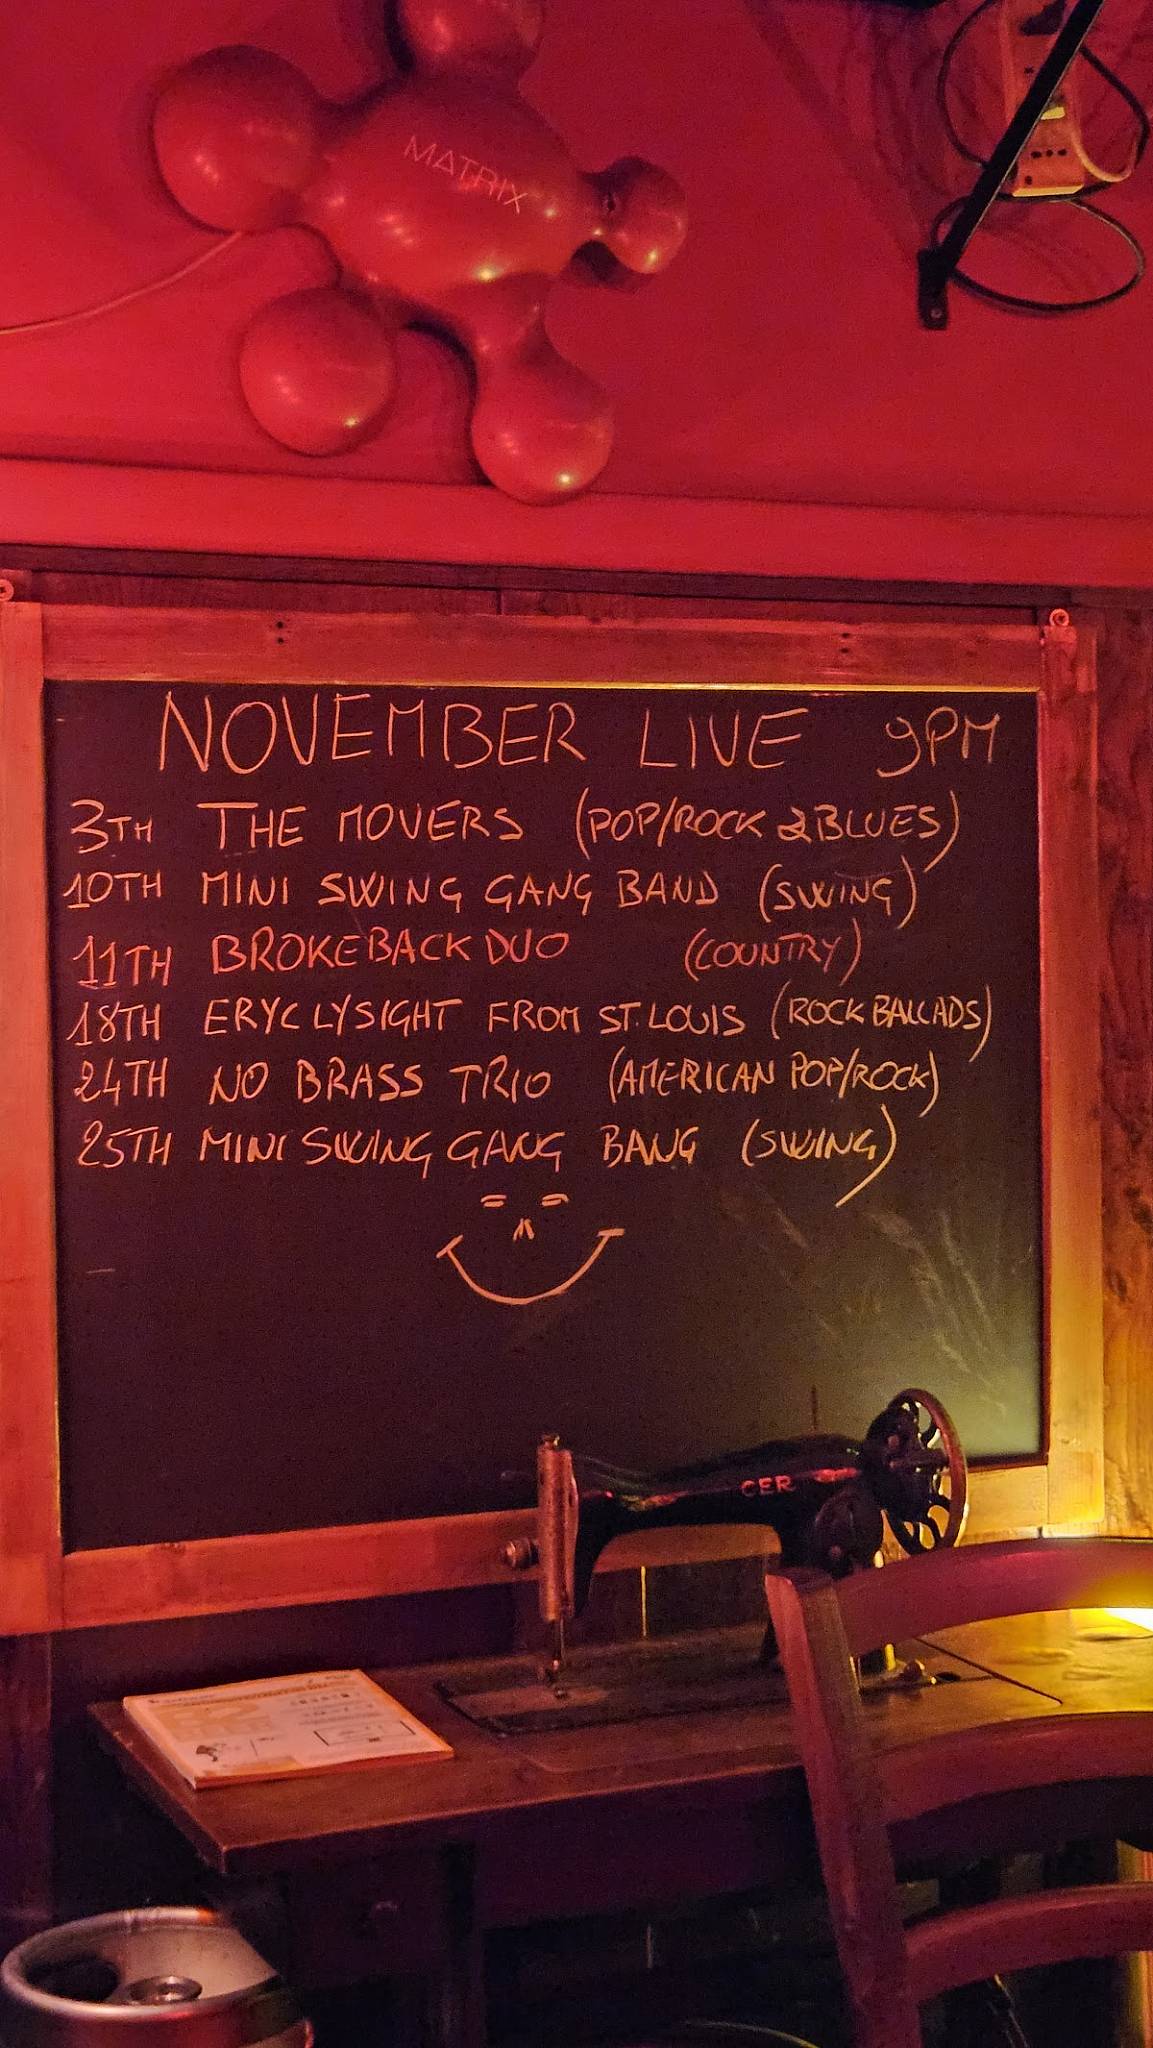 MATRIX
NOVEMBER LIVE 9PM
3TH THE MOVERS (POP/ROCK & BLUES)
10TH MINI SWING GANG BAND (SWING)
11TH BROKEBACK DUO (COUNTRY)
18TH ERYC LYSIGHT FROM ST. LOUIS (ROCK BALLADS)
24TH NO BRASS TRIO (AMERICAN POP/ROCK)
25TH MINI SWING GANG BANG (SWING)
CER